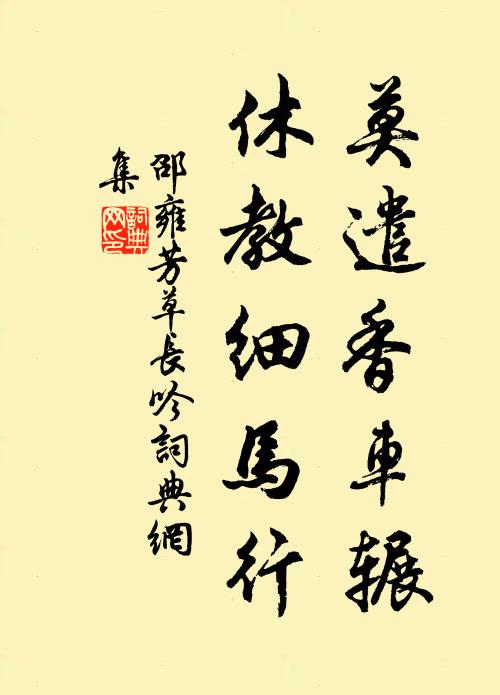 莫遣香車辗
休教细馬行
邵雍芳草長吟詞典網
集
詞典
网印